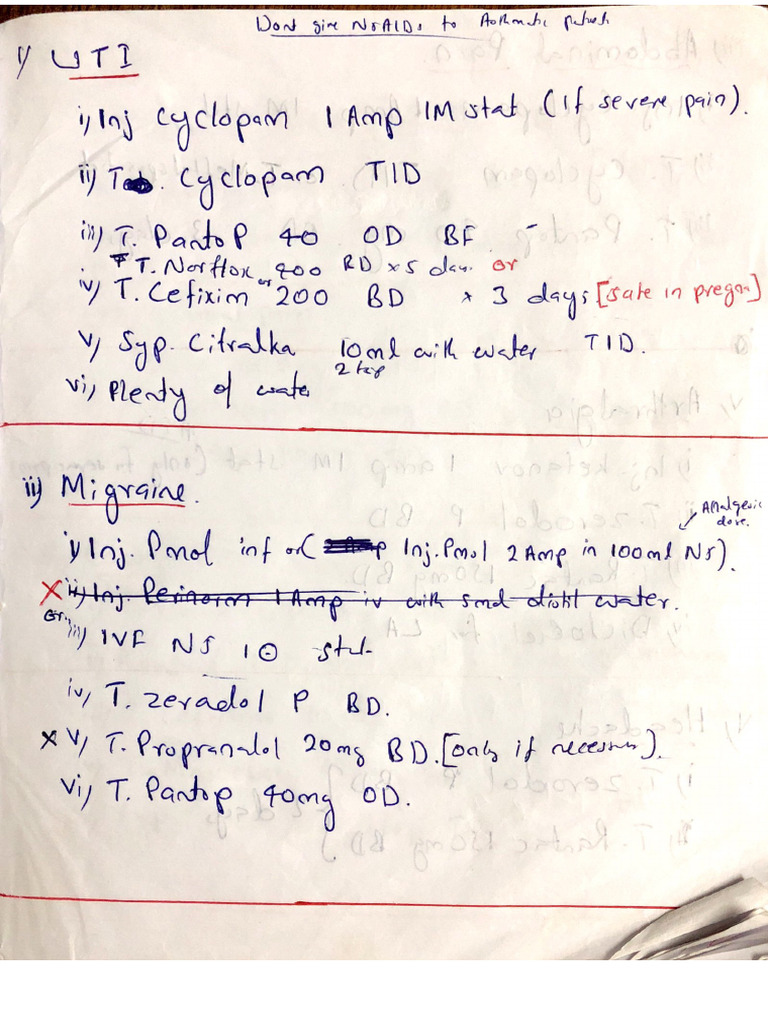 Dont give NSAIDs to Asthmatic patients
1) UTI
i) Inj Cyclopam 1 Amp IM stat (If severe pain).
ii) T. Cyclopam TID
iii) T. Panto P 40 OD BF
T. Norflox 400 BD x 5 day. or
iv) T. Cefixim or 200 BD x 3 days [safe in pregn]
v) Syp. Citralka 10ml with water TID.
2 tsp
vi) Plenty of water
ii) Migraine.
Analgesic dose.
i) Inj. Pmol inf or ( Inj. Pmol 2 Amp in 100ml NS).
ii) Inj. Perinorm 1 Amp iv with 5ml distil water.
iii) IVF NS 1 stat
iv) T. Zeradol P BD.
x v) T. Propranalol 20mg BD. [only if necessary].
vi) T. Pantop 40mg OD.